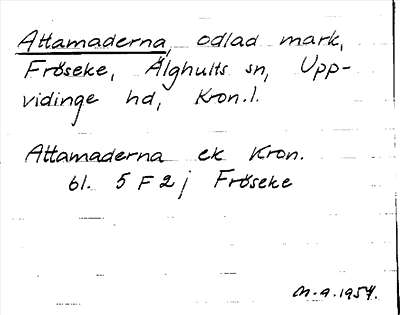 Attamaderna, odlad mark,
Fröseke, Älghults sn, Upp-
vidinge hd, Kron.l.
Attamaderna ek Kron.
bl. 5 F 2 j Fröseke
M.A. 1957.